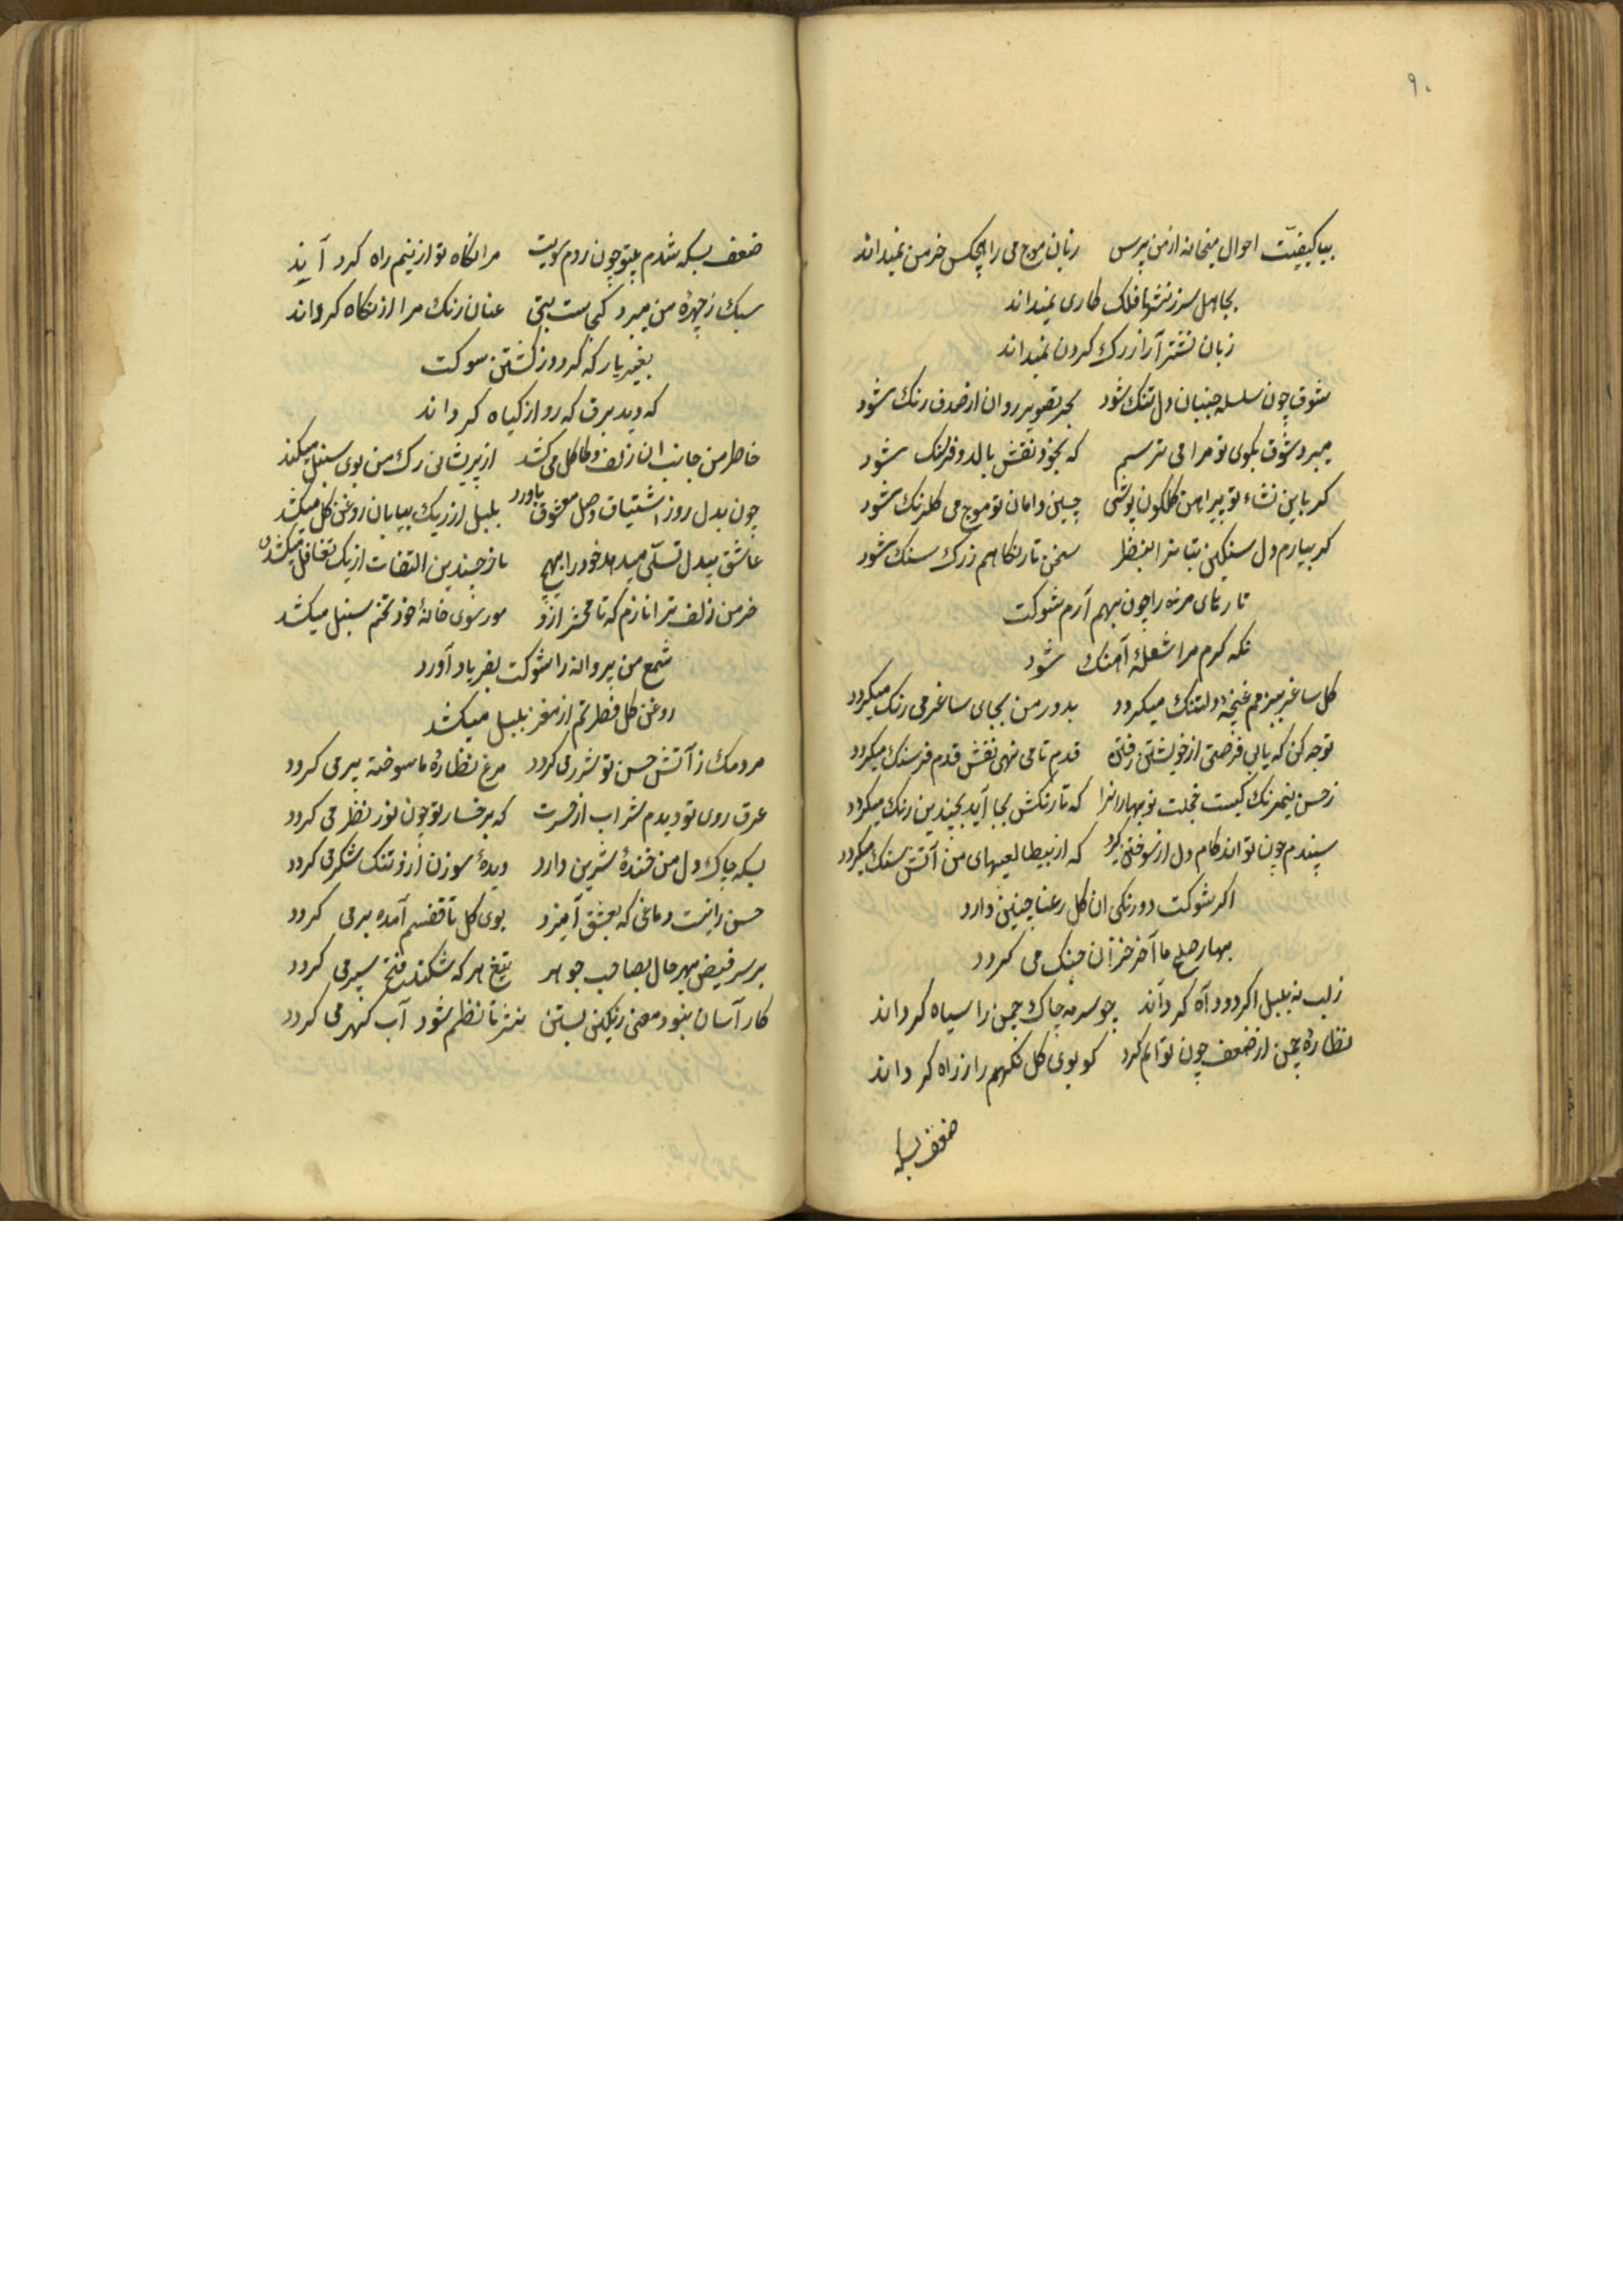 ۹۰
بیا کیفیّت احوال میخانه از من پرس زبان موج می را هیچکس جز من نمیداند
بجاهل سرزنشها فلک کاری نمیداند
زبان نشتر آزار رک کردن نمیداند
شوق چون سلسله جنبان دل تنک شود بحر تصویر روان از صدف رنک شود
میبرد شوق بکوی تو مرا می ترسم که بخود نقش بالد و فرسنک شود
کر باین نشاء تو پیراهن کلکون پوشی چین دامان تو موج می کلرنک شود
کر بیارم دل سنکین بتانرا بنظر سخن تار نکاهم زرک سنک شود
تارهای مژه را چون بهم آرم شوکت
نکه کرم مرا شعلهٔ آهنک شود
کل ساغر بزمم غنچهٔ دلتنک میکردد بدور من بجای ساغر می رنک میکردد
توجه کن که یابی فرصتی از خویشتن رفتن قدم تا می نهی نقش قدم فرسنک میکردد
ز حسن نیمرنک کیست خجلت نوبهارانرا که تا رنکش بجا آید بچندین رنک میکردد
سپندم چون تواند کام دل از سوختن کیرد که از بیطالعیهای من آتش سنک میکردد
اکر شوکت دورنکی ان کل رعنا چنین دارد
بهار صلح ما آخر خزان جنک می کردد
ز لب نه بلبل اکر دود آه کرداند چو سرمه چاک چمن را سیاه کرداند
نظارهٔ چمن از ضعف چون توانم کرد که بوی کل نکهم را ز راه کرداند
ضعف بسکه
ضعف بسکه شدم بیتو چون روم سویت مرا نکاه تو از نیم راه کرد آند
سبک ز چهرهٔ من میبرد کجاست بتی عنان رنک مرا از نکاه کرداند
بغیر یار که کردد ز کشتن شوکت
که دید برق که رو از کیاه کرداند
خاطر من جانب ان زلف و کاکل می کشد از پریشانی رک من بوی سنبل میکند
چون بدل روز اشتیاق وصل معشوق باورد بلبل از ریک بیابان روغن کل میکشد
عاشق بیدل تسلی میدهد خود را بهیچ ناز چندین التفات از یک تغافل میکشد
خرمن زلف ترا نازم که تا محشر ازو مور سوی خانهٔ خود تخم سنبل میکشد
شمع من پروانه را شوکت بفریاد آورد
روغن کل فطرتم از مغز بلبل میکشد
مردمک از آتش حسن تو شرر می کردد مرغ نظارهٔ ما سوخته پر می کردد
عرق روی تو دیدم شراب از حسرت که بر خسار تو چون نور نظر می کردد
بسکه چاک دل من خندهٔ شیرین دارد دیدهٔ سوزن ازو تنک شکر می کردد
حسن را نیست دماغی که بعشق آمیزد بوی کل تا قفسم آمده بر می کردد
بر سر فیض بهر حال بصاحب جوهر تیغ هر که شکند فتح سپر می کردد
کار آسان نبود معنی رنکین بستن نثر تا نظم شود آب کهر می کردد